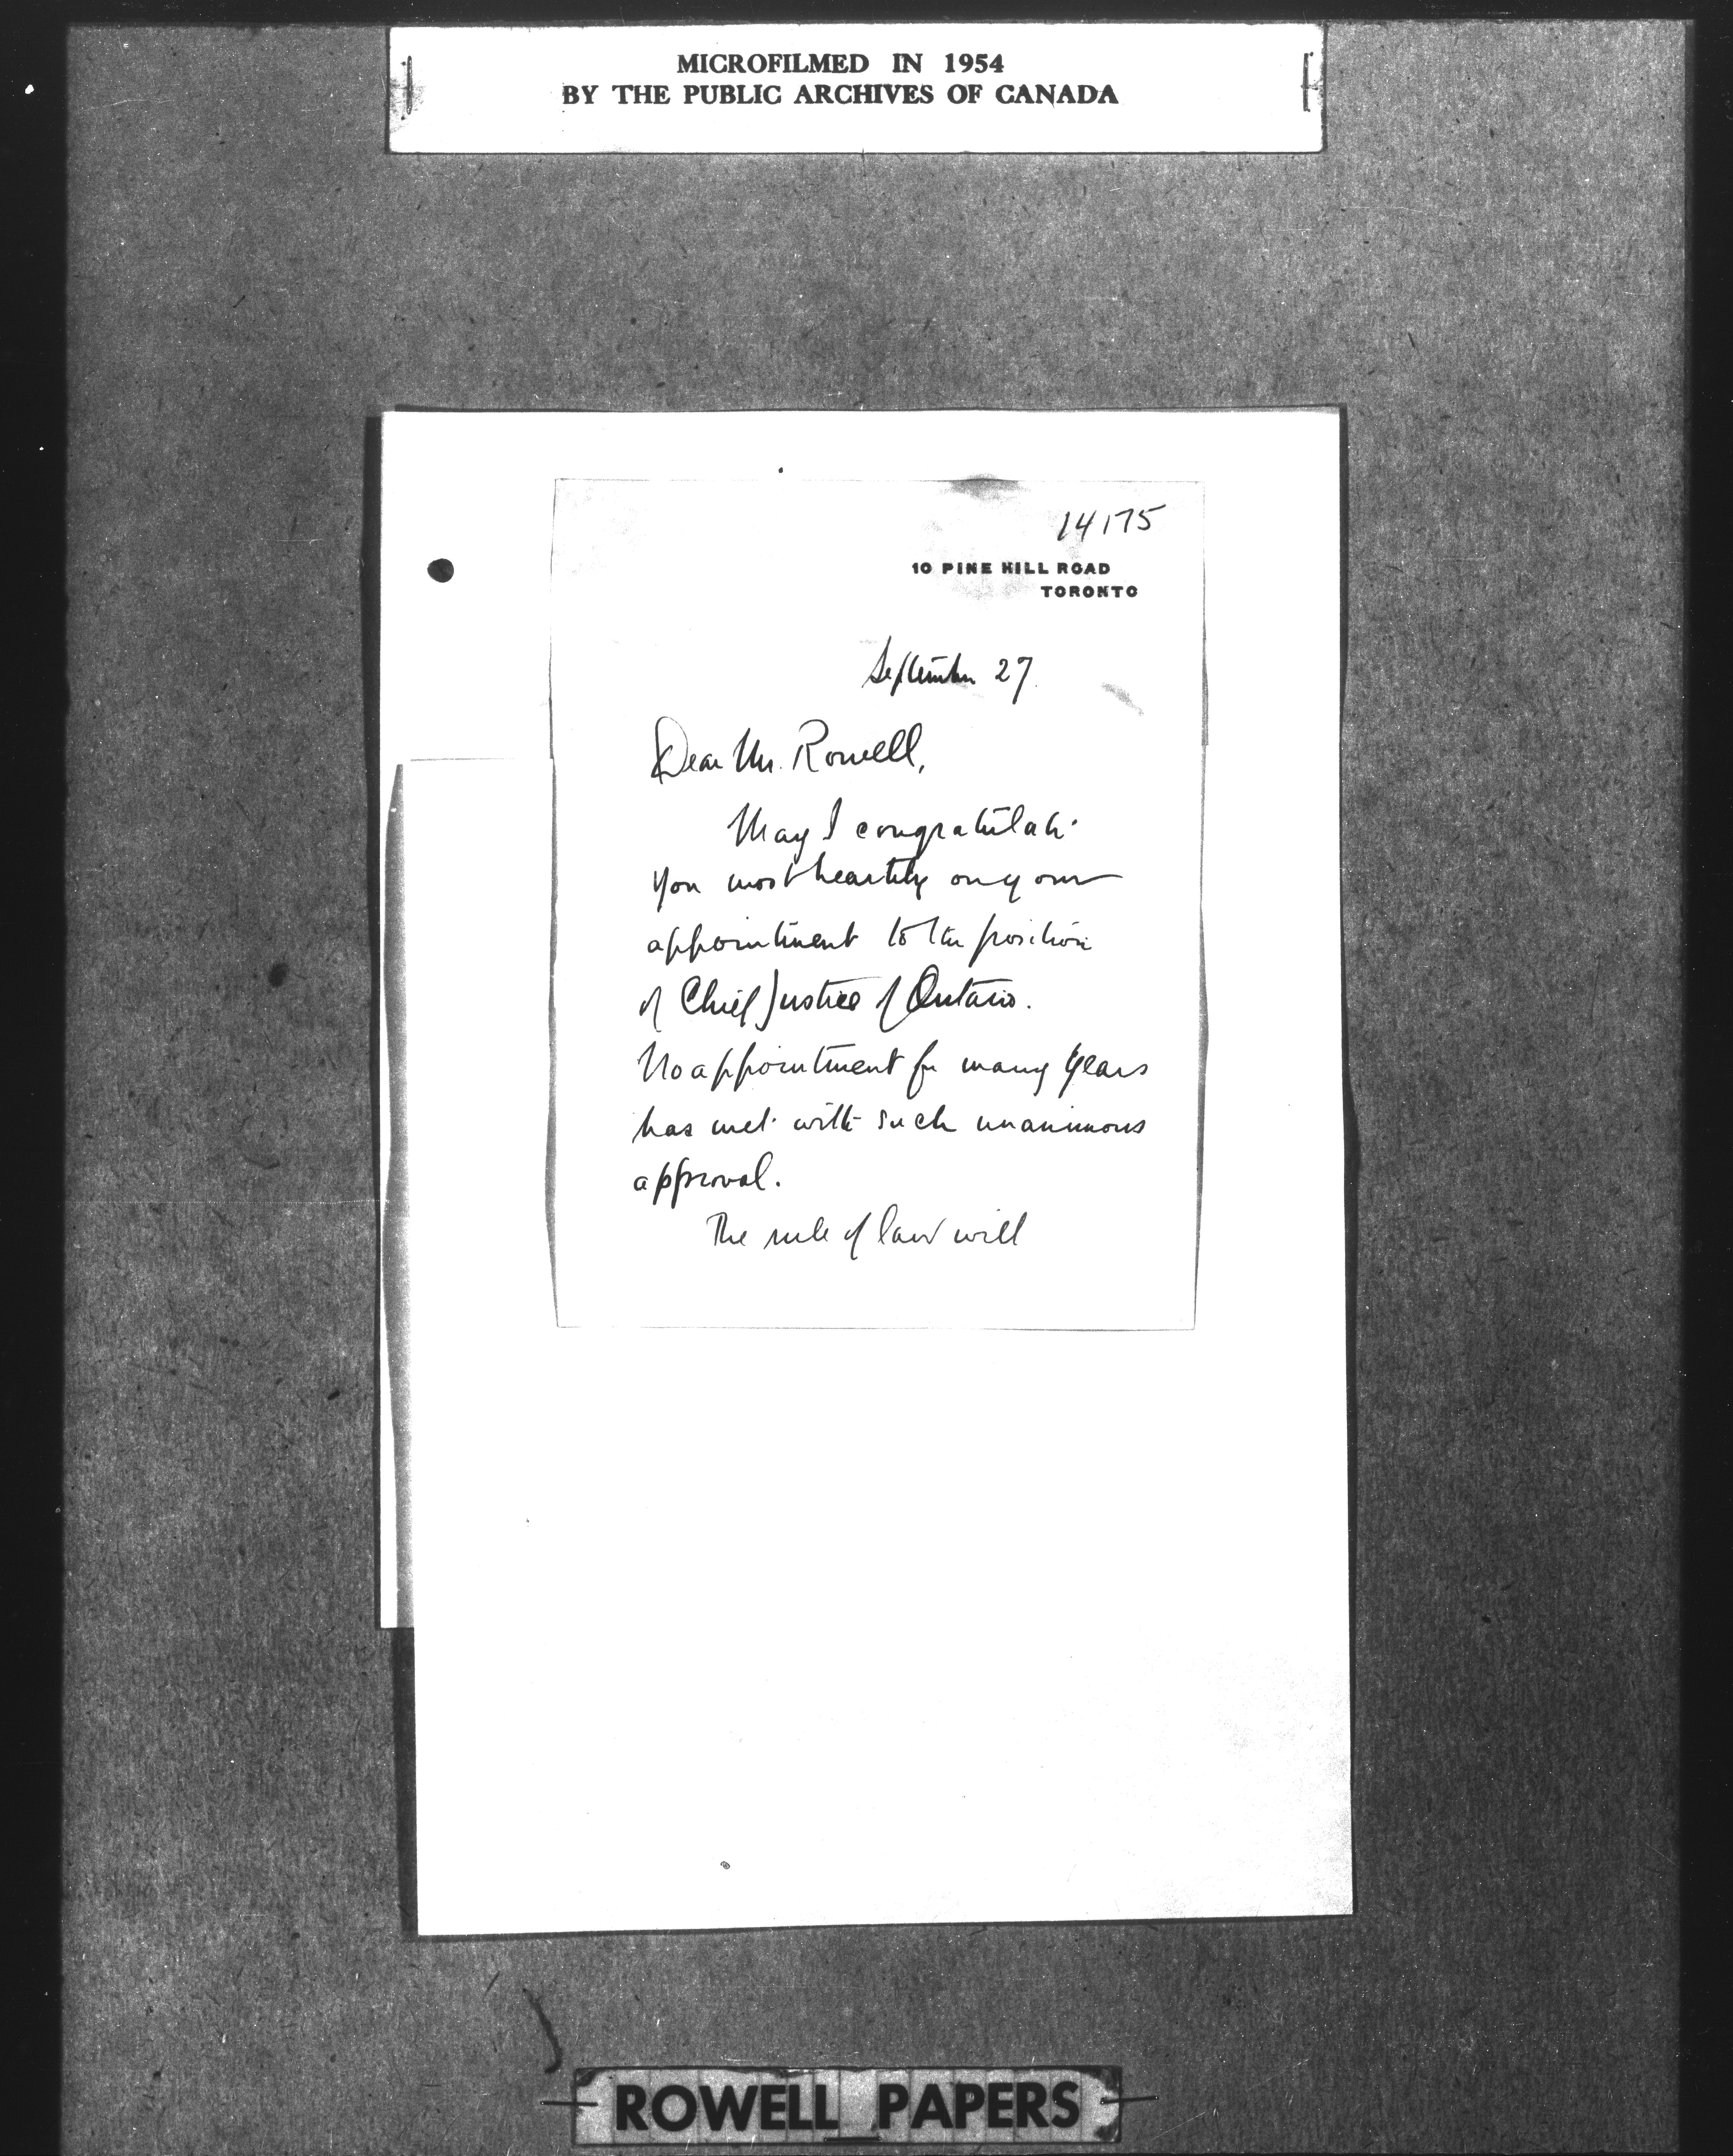 MICROFILMED IN 1954
BY THE PUBLIC ARCHIVES OF CANADA
14175
10 PINE HILL ROAD
TORONTO
September 27.
Dear Mr. Rowell,
May I congratulate
you most heartily on your
appointment to the position
of Chief Justice of Ontario.
No appointment for many years
has met with such unanimous
approval.
The rule of law will
ROWELL PAPERS